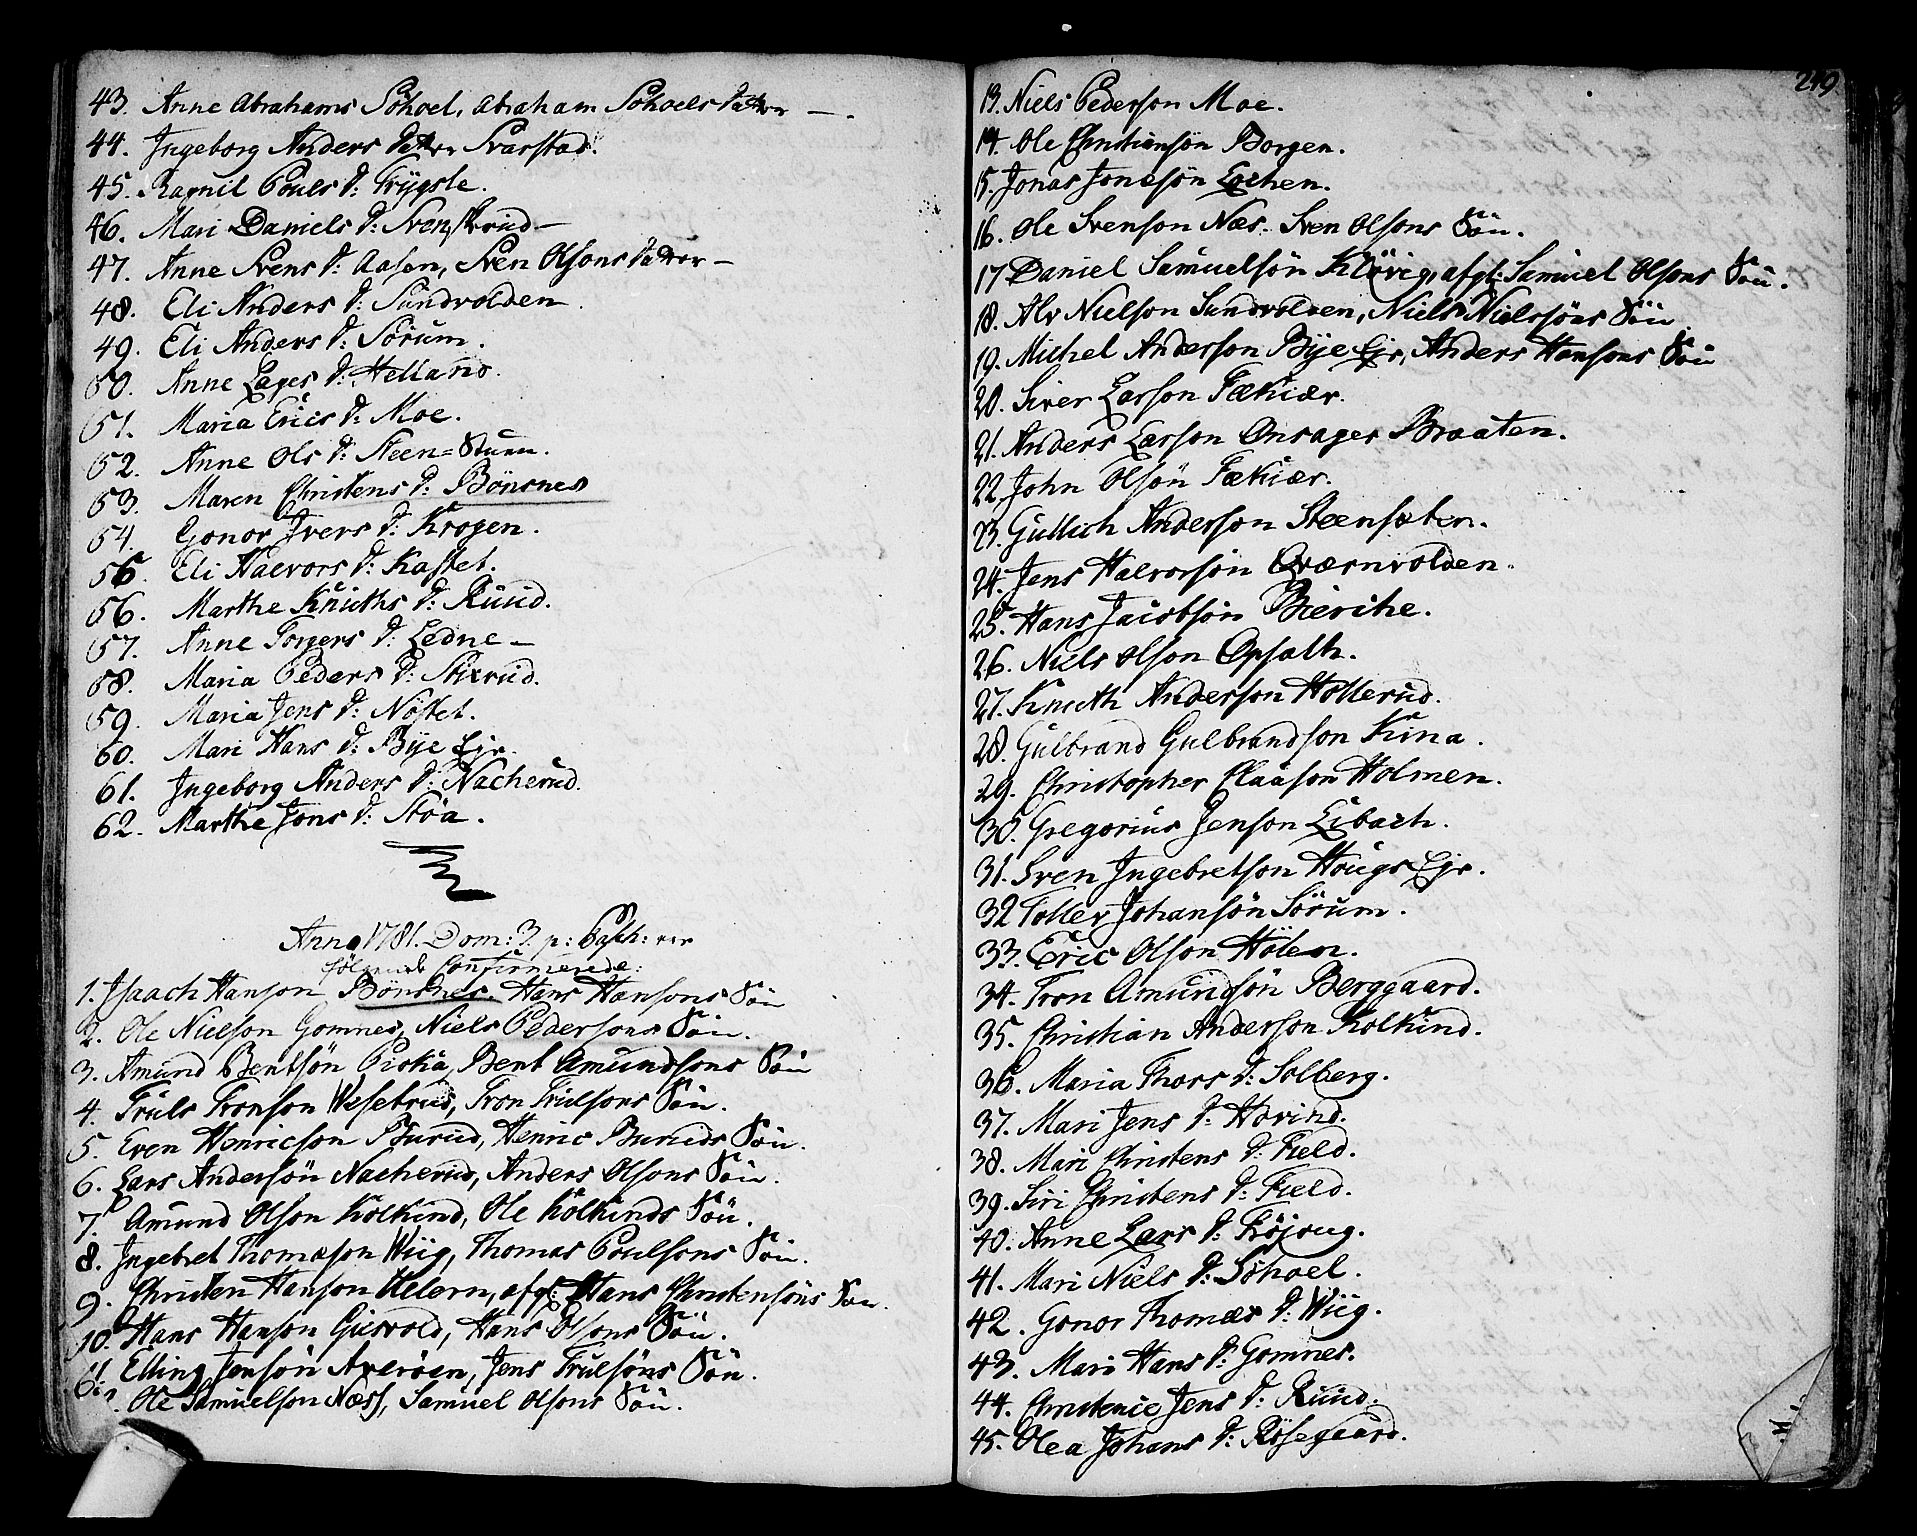 43. Anne Abrahams Sohoel, Abraham Sohoels Datter —
44. Ingeborg Anders Datter Svarstad.
45. Ragnil Pouls D: Frÿgsle.
46. Mari Daniels D: Svenskrud —
47. Anne Svens D: Aasen, Sven Olsons Datter —
48. Eli Anders D: Sundvolden
49. Eli Anders D: Sörum.
50. Anne Lages D: Helland.
51. Maria Erics D: Moe.
52. Anne Ols D: Steen=Stuen.
53. Maren Christens D: Bönsnes
54. Gonor Ivers D: Krogen.
55. Eli Haevors D: Kastet.
56. Marthe Knuths D: Ruud.
57. Anne Torgers D: Ledne —
58. Maria Peders D: Stixrud.
59. Maria Jens D: Nöstet.
60. Mari Hans D: Bÿe Ejr.
61. Ingeborg Anders D: Nacherud.
62. Marthe Jons D: Stöa.
Anno 1781. Dom: 3. p: Pasch: ere
fölgende Confirmerede:
1. Isaach Hanson Bönsnes. Hans Hansons Sön
2. Ole Nielson Gomnes, Niels Pedersons Sön.
3. Amund Bentsön Piska, Bent Amundsons Sön
4. Truls Tronson Wesetrud, Tron Trulsons Sön.
5. Even Henricson Burud, Henric Buruds Sön.
6. Lars Andersön Nacherud, Anders Olsons Sön.
7. Amund Olson Kolkind, Ole Kolkinds Sön.
8. Ingebret Thomason Wiig, Thomas Poulsons Sön.
9. Christen Hanson Ulern, afg: Hans Christensöns Sön.
10. Hans Hanson Gusvold, Hans Olsons Sön.
11. Elling Jensön Averöen, Jens Trulsöns Sön.
12. Ole Samuelson Næss, Samuel Olsons Sön.
219
13. Niels Pederson Moe.
14. Ole Christiansön Borgen.
15. Jonas Jonasön Lochen.
16. Ole Svenson Næs. Sven Olsons Sön.
17 Daniel Samuelsön Klövig, afg: Samuel Olsons Sön.
18. Alv Nielson Sundvolden, Niels Nielssöns Sön
19. Michel Anderson Bÿe Ejr, Anders Hansons Sön
20. Siver Larson Fækiær.
21. Anders Larson Onsager Braaten.
22. John Olsön Fækiær.
23. Gullich Anderson Steensæten.
24. Jens Halvorsön Qværnvolden.
25. Hans Jacobsön Bierche.
26. Niels Olson Opsalh.
27. Knuth Anderson Hollerud.
28. Gulbrand Gulbrandson Kina.
29. Christopher Claason Holmen.
30. Gregorius Jenson Libach.
31. Sven Ingebretson Hougs Ejr.
32 Toller Johansön Sörum.
33. Eric Olson Hölen.
34. Tron Amundsön Berggaard.
35. Christian Anderson Kolkind.
36. Maria Thors D: Solberg.
37. Mari Jens D: Hovind.
38. Mari Christens D: Field.
39. Siri Christens D: Field.
40. Anne Lars D: Fröjoug.
41. Mari Niels D: Sohoel.
42. Gonor Thomæs D: Wiig.
43. Mari Hans D: Gomnes.
44. Christence Jens D: Ruud.
45. Olea Johans D: Rösegaard.